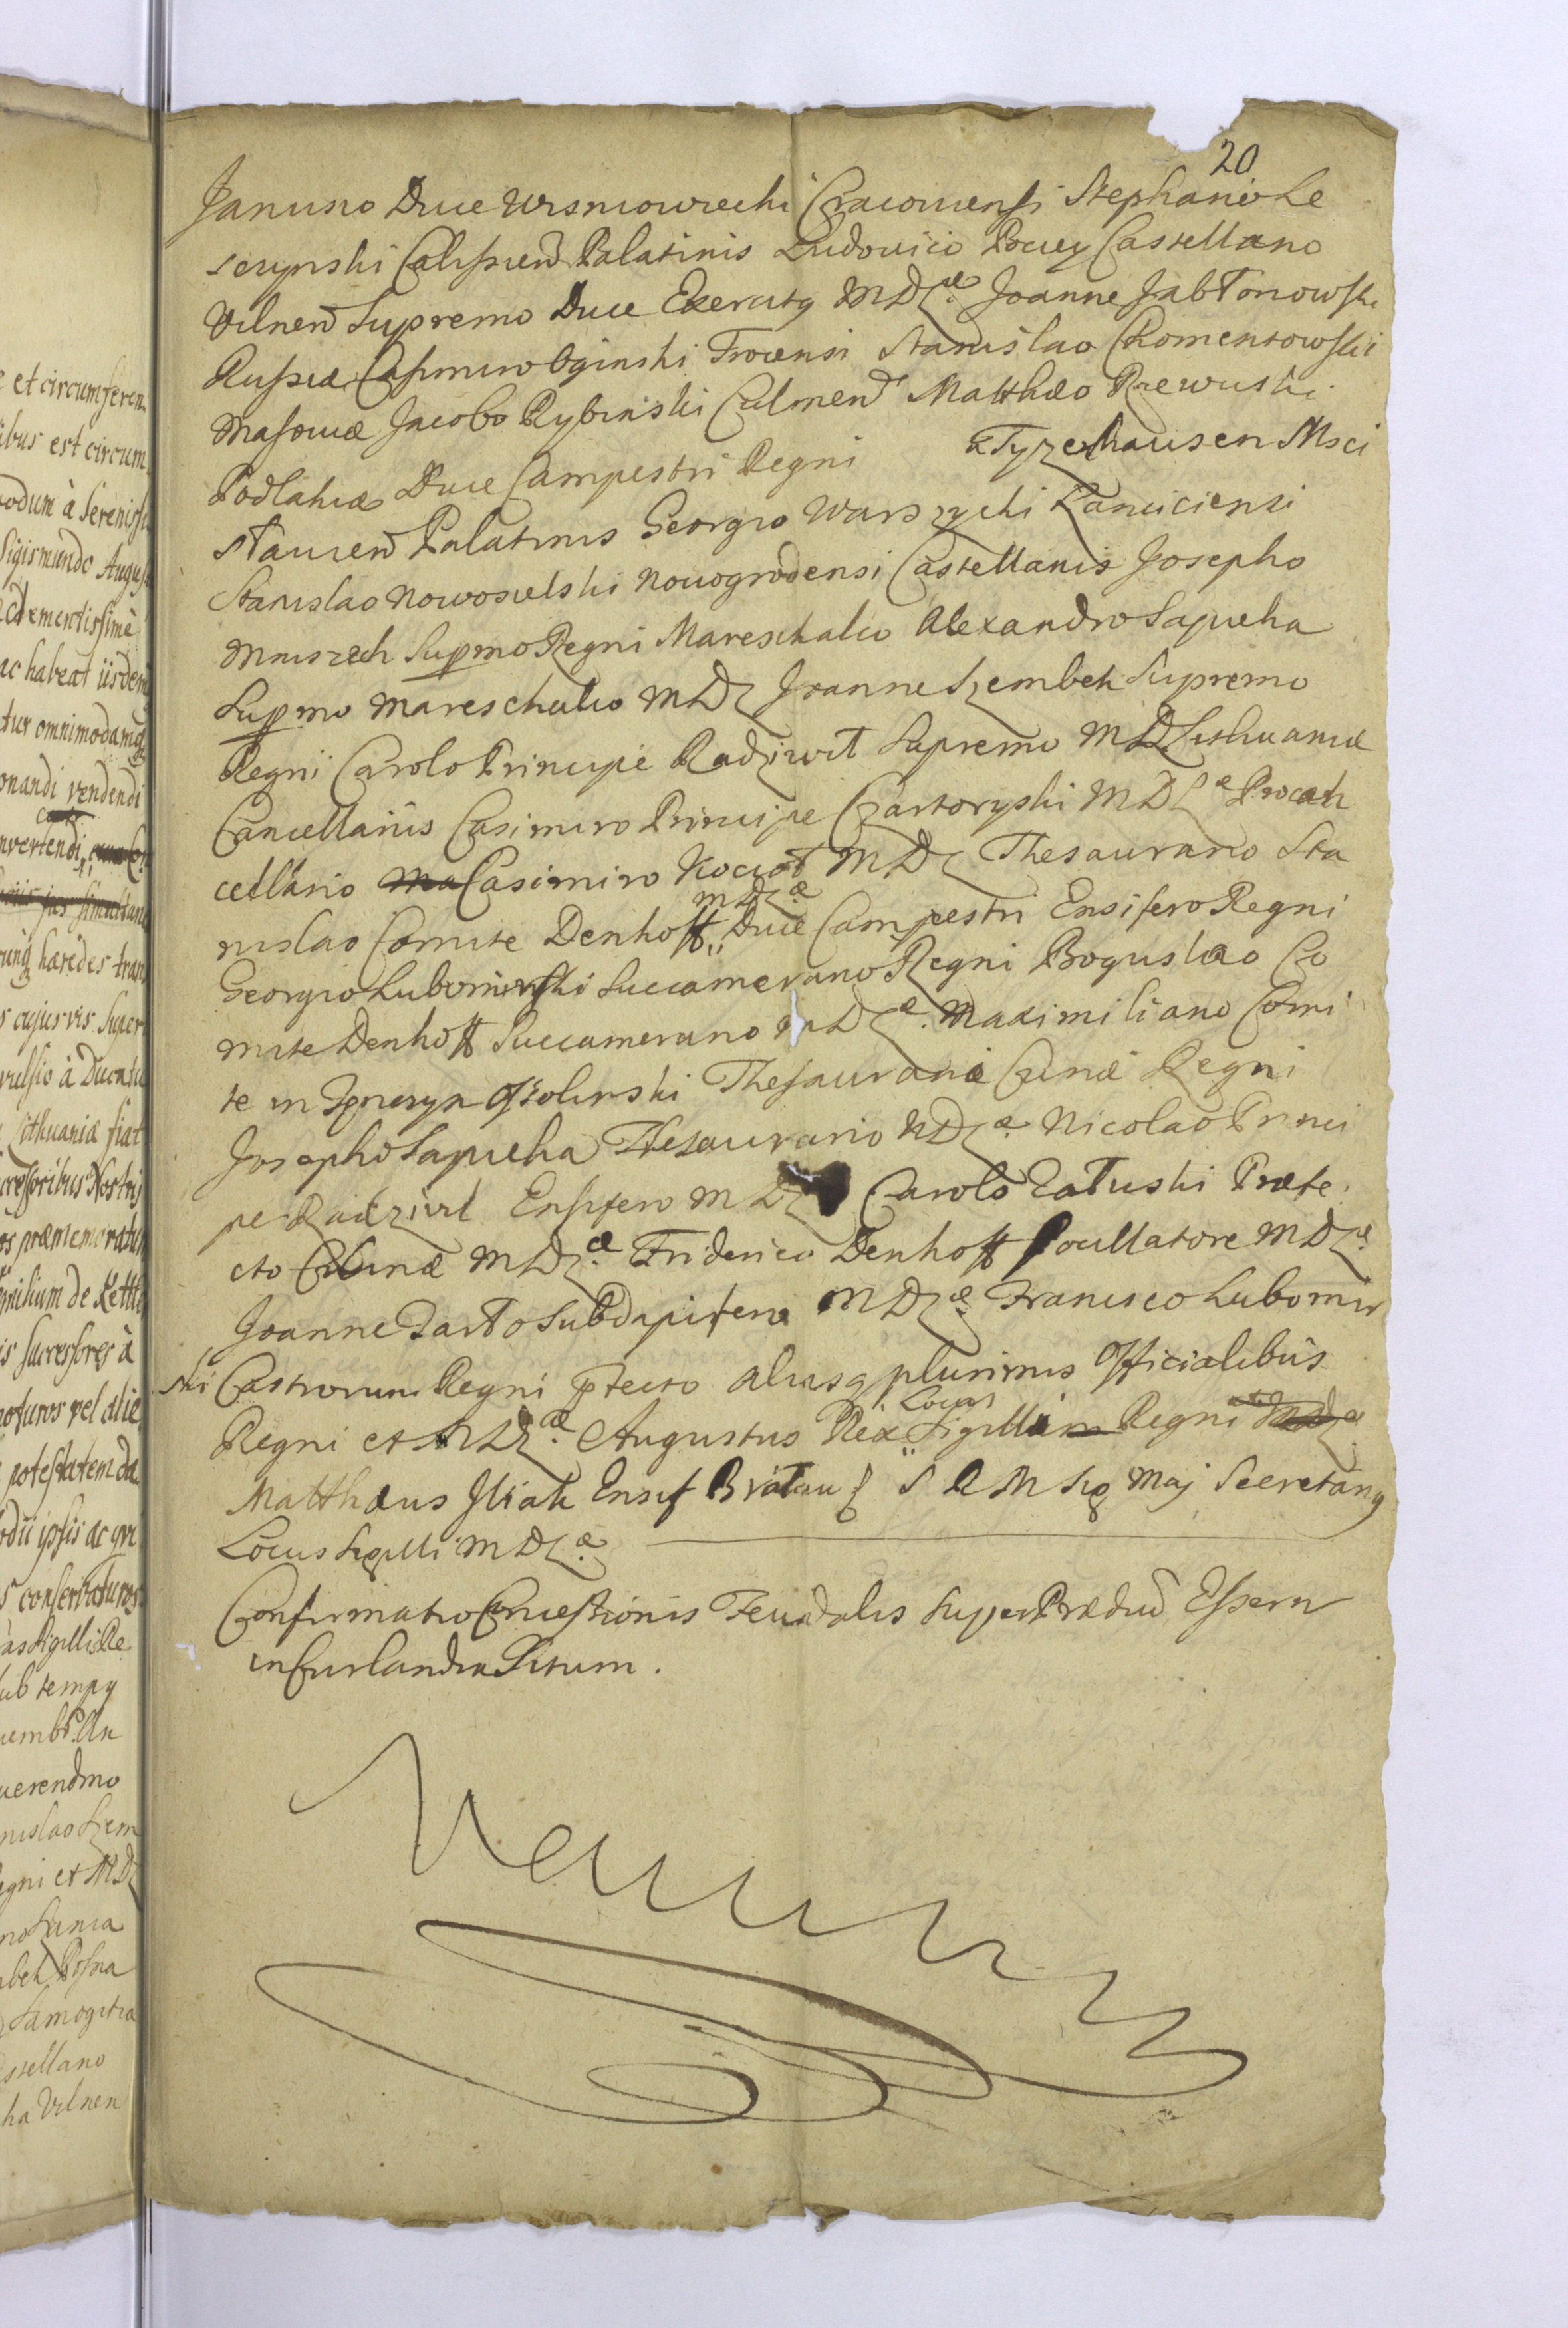 20
Janusio Duce Wisniowiecki Cracoviensi Stephano Le
sczynski Calissien Palatinis Ludovico Pociey Castellano
Vilnen Supremo Duce Exercitg MDLæ. Joanne Jabłonowski
Russiæ Casimiro Oginski Trocensi Stanislao Chomentowski
Masoviæ Jacobo Rybinski Culmen Matthæo Rzewuski
Podlahiæ Duce Campestri Regni a Tyzenhausen Msci
slavien Palatinis Georgio Warszycki Lanciciensi
Stanislao Nowosielski Novogrodensi Castellanis Josepho
Mniszech Supmo Regni Mareschalco Alexandro Sapieha
Supmo Mareschalco MDL Joanne Szembek Supremo
Regni Carolo Principe Radziwił Supremo MDLithuaniæ
Cancellariis Casimiro Principe Czartoryski MDLæ Procan
cellario Casimiro Kocieł MDL Thesaurario Sta
nislao Comite Denhoff MDLæ Duce Campestri Ensifero Regni
Georgio Lubomirski Succamerario Regni Boguslao Co
mite Denhoff Succamerario MDLæ. Maximiliano Comi
te in Tenczyn Ossolinski Thesaurario Curiæ Regni
Josepho Sapieha Thesaurario MDLæ. Nicolao Princi
pe Radziwł Ensifero MDL Carolo Załuski Præfe
cto Culinæ MDLæ. Friderico Denhoff Pocillatore MDLæ.
Joanne Zarło Subdapifero MDLæ. Francisco Lubomir
ski Castrorum Regni pfecto aliisq plurimis Officialibus
Regni et MDLæ. Augustus Rex Locus Sigilli Regni
Matthæus Iliak Ensif Bratław S R M Sig Maj Secretarig
Locus Sigilli MDLæ.
Confirmatio Concessionis Feudalis super Prædiu Essern
in Curlandia Situm.

et circumferen
ibus est circum
odum à Serenissi
Sigismundo Augus
clementissimè
ac habeat iisdem
tur omnimodamq
onandi vendendi
nvertendi
hæredes tran
s cujusvis super
vulsio à Ducatu
Lithuaniæ fiat
ccessoribus Nostris
os præmemoratum
milium de Kettle
is successores à
oturos vel alie
potestatem da
odii ipsis ac
s conservaturos
as Sigillis Re
ub tempg
embr. An
uerendmo
nislao Szem
egni et MDL
bek Posna
Samogitia
stellano
ha Vilnen